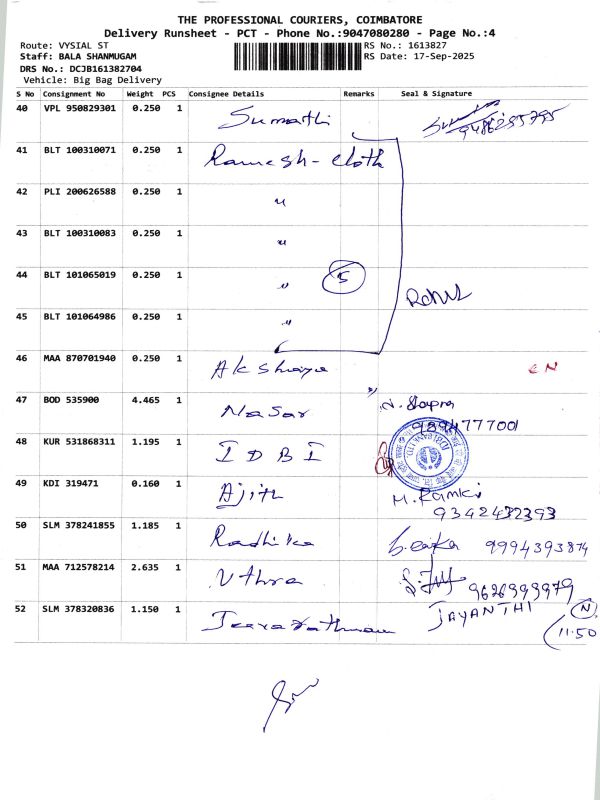 THE PROFESSIONAL COURIERS, COIMBATORE
Delivery Runsheet - PCT - Phone No.:9047080280 - Page No.:4
Route: VYSIAL ST
RS No.: 1613827
Staff: BALA SHANMUGAM
RS Date: 17-Sep-2025
DRS No.: DCJB161382704
Vehicle: Big Bag Delivery
S No Consignment No Weight PCS Consignee Details Remarks Seal & Signature
40 VPL 950829301 0.250 1 Sumathi 9486255795
41 BLT 100310071 0.250 1 Ramesh - cloth
42 PLI 200626588 0.250 1 "
43 BLT 100310083 0.250 1 "
44 BLT 101065019 0.250 1 " 5
45 BLT 101064986 0.250 1 "
46 MAA 870701940 0.250 1 Akshaya
47 BOD 535900 4.465 1 Nasar
48 KUR 531868311 1.195 1 IDBI
49 KDI 319471 0.160 1 Ajith M. Ramki
9342432393
50 SLM 378241855 1.185 1 Radhika 9994393874
51 MAA 712578214 2.635 1 Uthra 9626999979
52 SLM 378320836 1.150 1 JAYANTHI N
11.50